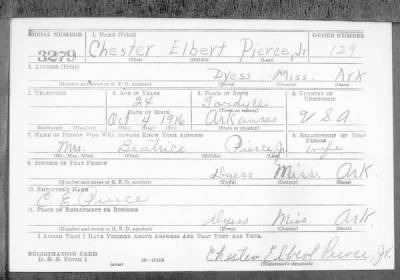 SERIAL NUMBER 1. NAME (Print) ORDER NUMBER
3279 Chester Elbert Pierce, Jr 129
(First) (Middle) (Last)
2. ADDRESS (Print)
Dyess Miss. Ark.
(Number and street or R. F. D. number)
3. TELEPHONE 4. AGE IN YEARS 5. PLACE OF BIRTH 6. COUNTRY OF CITIZENSHIP
24 Fordyce
DATE OF BIRTH
Oct 4 1916 Arkansas U S A.
(Exchange) (Number) (Mo.) (Day) (Yr.) (State or country)
7. NAME OF PERSON WHO WILL ALWAYS KNOW YOUR ADDRESS 8. RELATIONSHIP OF THAT PERSON
Mrs. Beatrice Pierce, Jr. wife
(Mr., Mrs., Miss) (First) (Middle) (Last)
9. ADDRESS OF THAT PERSON
Dyess Miss. Ark.
(Number and street or R. F. D. number)
10. EMPLOYER'S NAME
C. E. Pierce
11. PLACE OF EMPLOYMENT OR BUSINESS
Dyess Miss Ark.
(Number and street or R. F. D. number)
I AFFIRM THAT I HAVE VERIFIED ABOVE ANSWERS AND THAT THEY ARE TRUE.
REGISTRATION CARD
D. S. S. Form 1 Chester Elbert Pierce, Jr.
(over) (Registrant's signature)